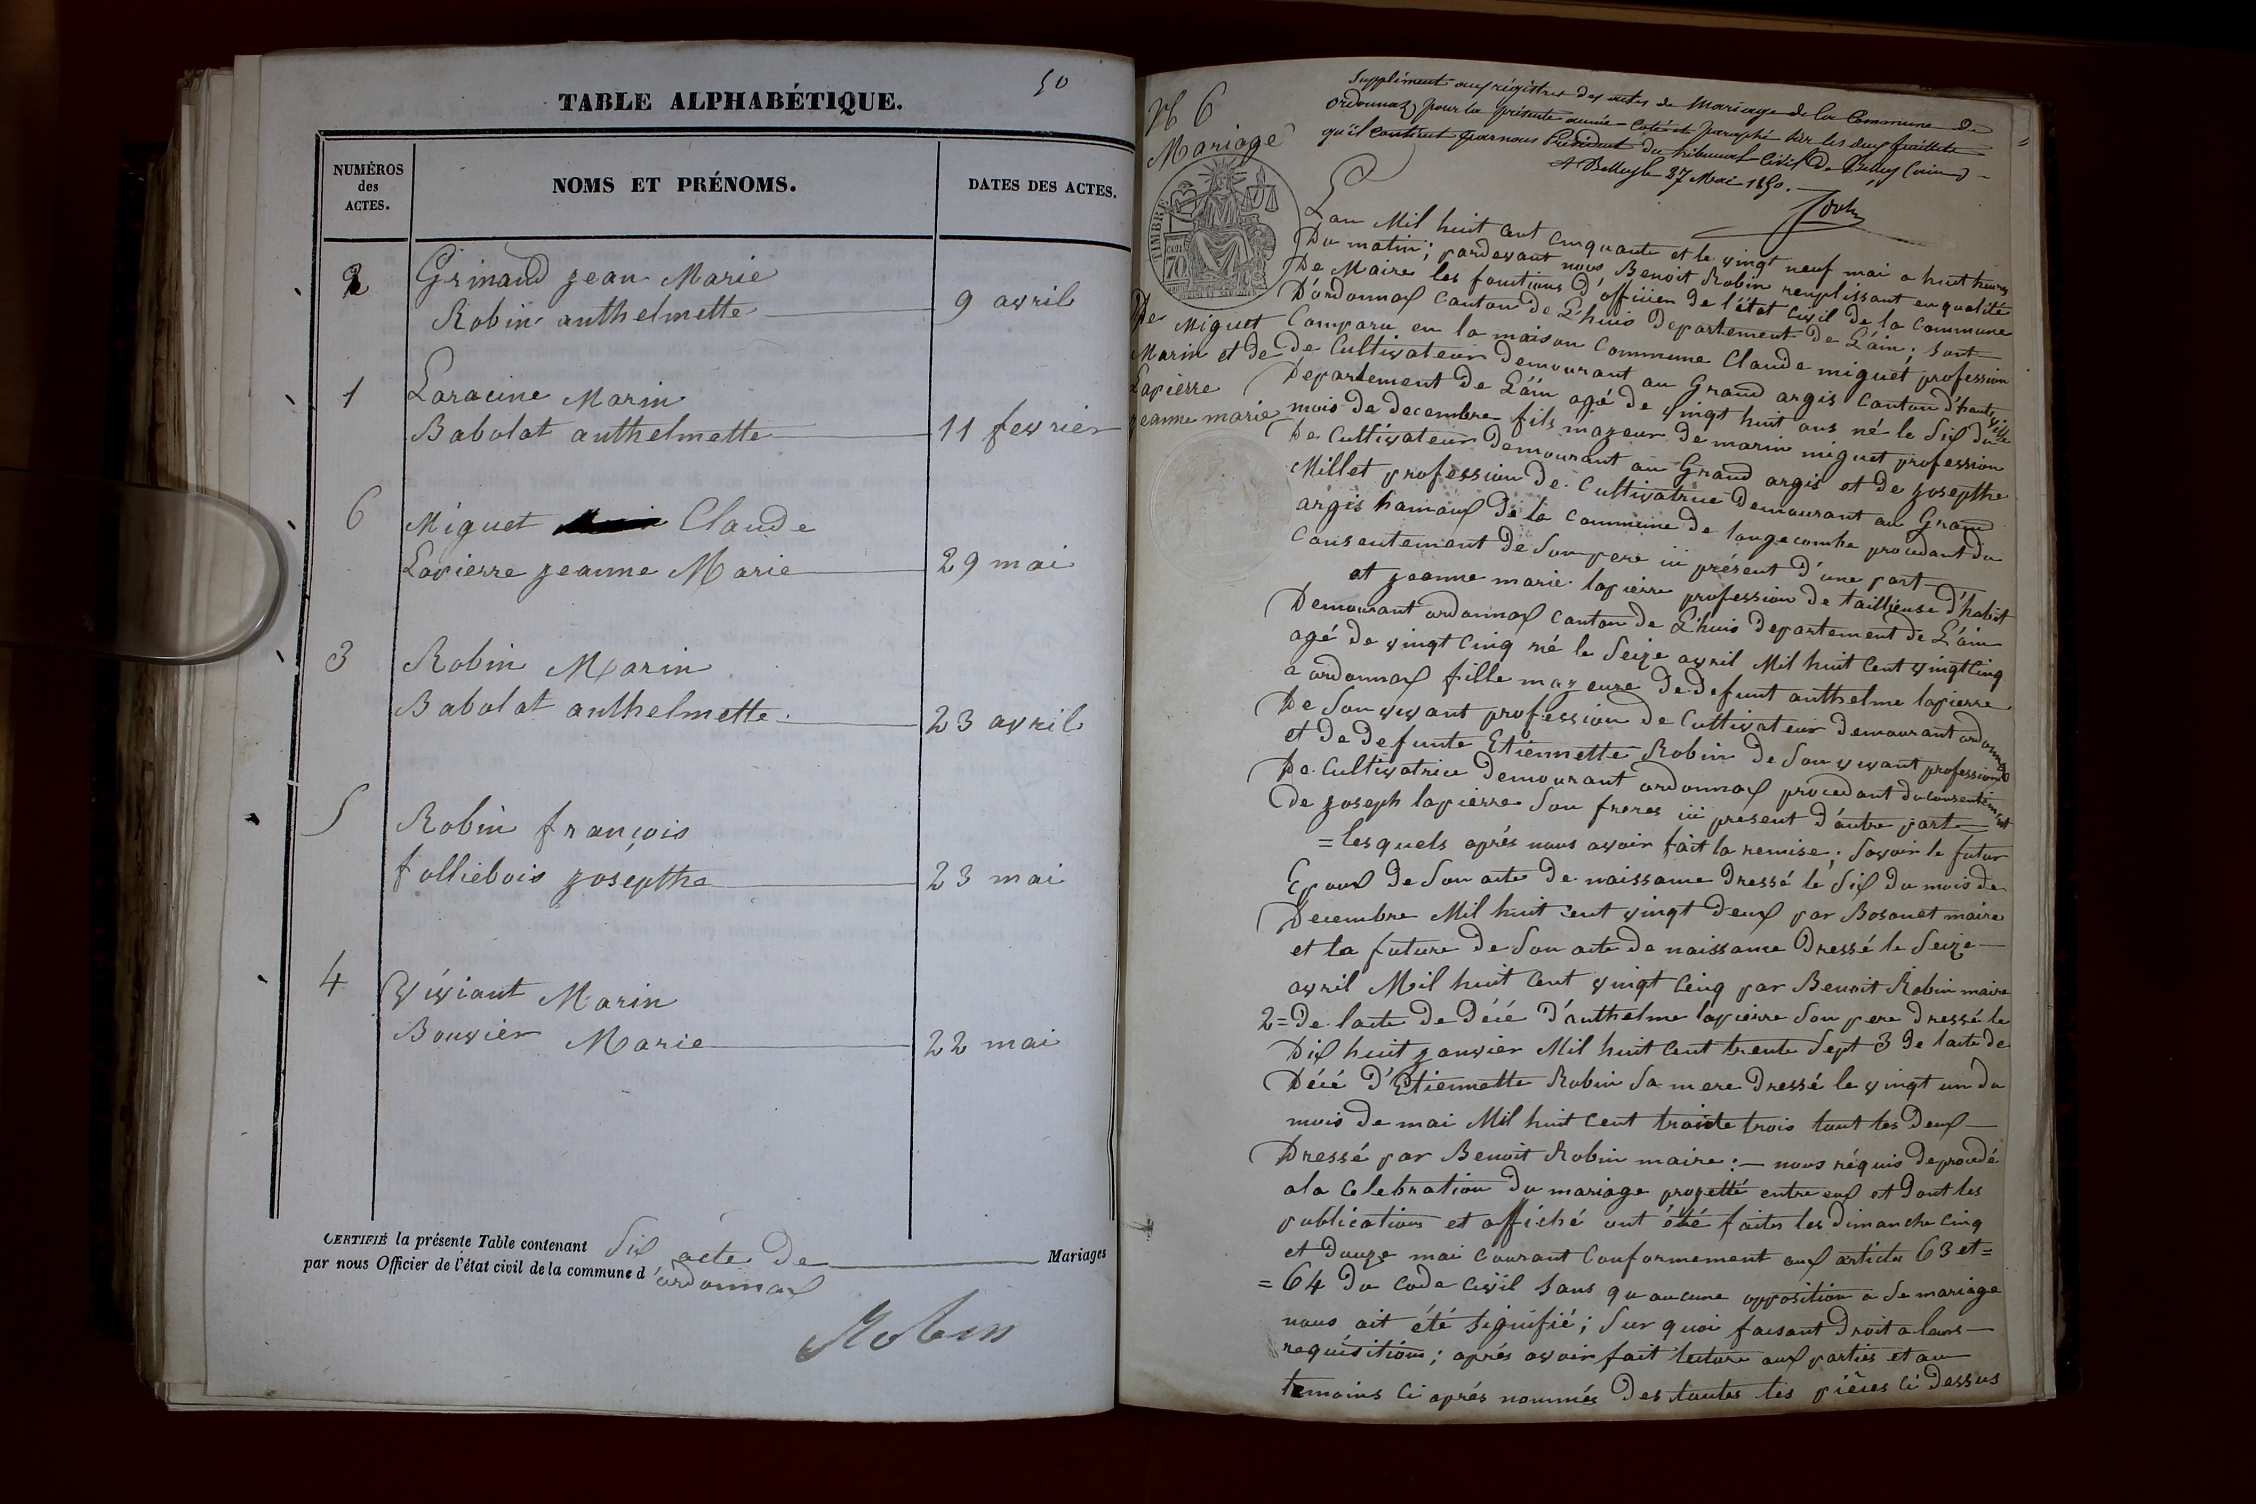 50
TABLE ALPHABÉTIQUE.
NUMÉROS
des
ACTES.
NOMS ET PRÉNOMS.
DATES DES ACTES.
2
Grinand jean Marie
Robin anthelmette
9 avril
1
Laracine Marin
Babolat anthelmette
11 fevrier
6
Miguet Claude
Lapierre jeanne Marie
29 mai
3
Robin Marin
Babolat anthelmette
23 avril
5
Robin françois
folliebois josepthe
23 mai
4
Viviant Marin
Bouvier Marie
22 mai
CERTIFIÉ la présente Table contenant Six acte de Mariages
par nous Officier de l'état civil de la commune d'ordonnax
Robin
N 6
Mariage
De Miguet
Marin et de
Lapierre
jeanne marie
TIMBRE
70
Supplément aux régistres des actes de Mariage de la Commune de
Ordonnaz pour la présente année coté et paraphé sur les deux feuillets
qu'il contient par nous Président du tribunal Civil de Belley (ain)
A Belley le 27 Mai 1850.
Lan Mil huit cent cinquante et le vingt neuf mai a huit heures
Du matin; pardevant nous Benoit Robin remplissant en qualité
De Maire les fonctions d'officier de l'état civil de la commune
D'ordonnax canton de L'huis departement de L'ain; sont
Comparu en la maison commune Claude miguet profession
de Cultivateur demourant au Grand argis canton d'hauteville
Departement de L'ain agé de vingt huit ans né le Six du
mois de decembre fils mageur de marin miguet profession
De Cultivateur demourant au Grand argis et de josepthe
Millet profession de Cultivatrice demourant au Grand
argis hamaux de la commune de longecombe procedant du
Consentement de Son pere ici présent d'une part
et jeanne marie lapierre profession de taillieuse d'habit
Demourant ordonnax canton de L'huis departement de L'ain
agé de vingt Cinq né le Seize avril Mil huit Cent vingt Cinq
a ordonnax fille mageure de defunt anthelme lapierre
De Son vivant profession de Cultivateur demourant ordonnax
et de defunte Etiennette Robin de Son vivant profession
De Cultivatrice demourant ordonnax procedant du consentement
de joseph lapierre Son freres ici present d'autre part
= les quels aprés nous avoir fait la remise; Savoir le futur
Epoux de Son acte de naissance Dressé le Six du mois de
Decembre Mil huit cent vingt deux par Bosonet maire
et la future de Son acte de naissance Dressé le Seize
avril Mil huit Cent vingt Cinq par Benoit Robin maire
2= De lacte de Décé D'anthelme lapierre Son pere dressé le
Dix huit janvier Mil huit Cent trente Sept 3 De lacte de
Décé d'Etiennette Robin Sa mere Dressé le vingt un du
mois de mai Mil huit Cent trante trois tout les deux
Dressé par Benoit Robin maire: nous réquis de procedé
a la Celebration du mariage projetté entre eux et dont les
publications et affiché ont été faites les Dimanche Cinq
et douze mai courant Conformement aux article 63 et =
= 64 du code Civil Sans qu aucune opposition a Se mariage
nous ait été Signifié; Sur quoi faisant Droit a leurs
requisitions; aprés avoir fait lecture aux parties et au
temoins Ci aprés nommés des toutes les piéces Ci dessus